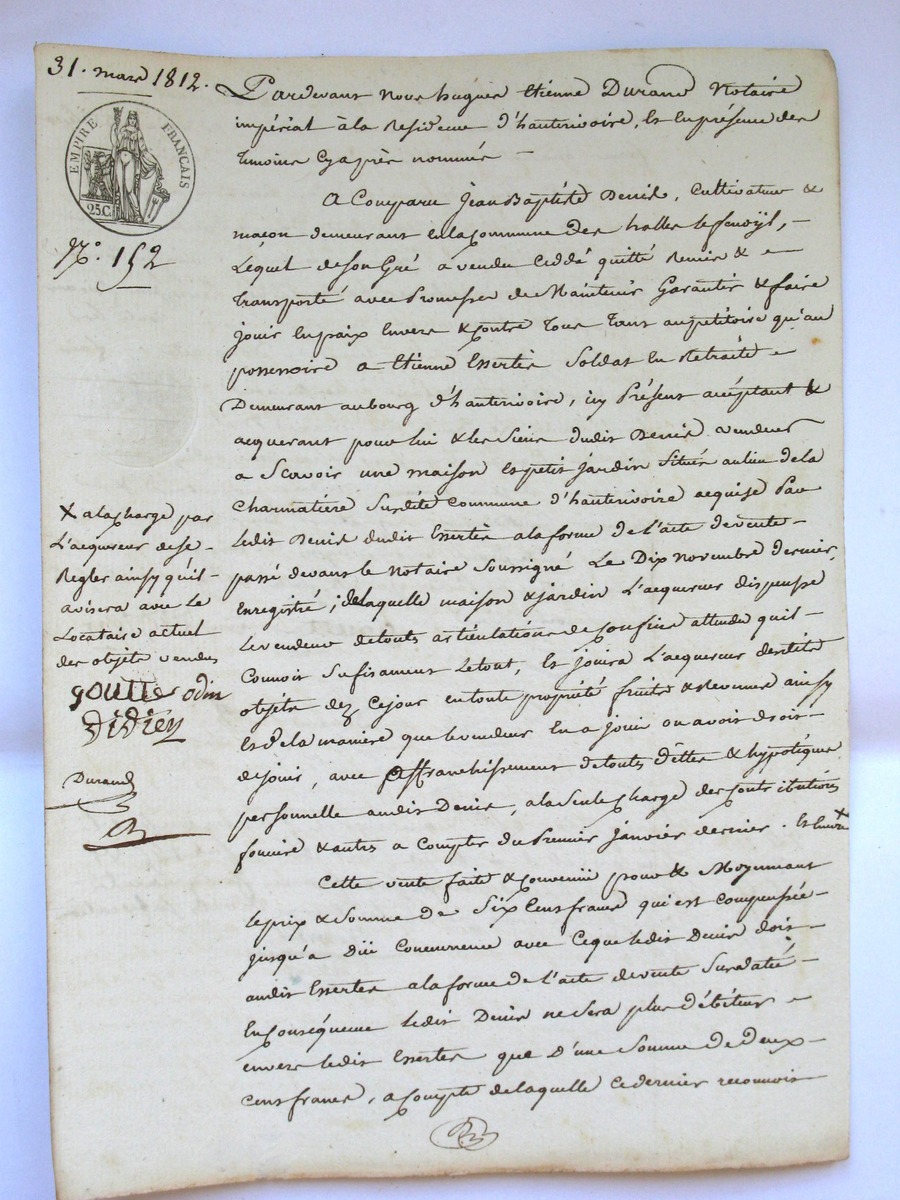 31. mars 1812.
EMPIRE FRANÇAIS
25C.
N.° 152
Pardevant Nous hugues Etienne Durand Notaire
impérial à la Residence d'hauterivoire, Et en présence des
temoins cyaprès nommés —
A Comparu Jean Baptiste Denis, Cultivateur &
maçon demeurant en la Commune des halles le fenoÿl, —
Lequel de son Gré a vendu Ceddé quitté Remis & —
Transporté avec Promesse de Maintenir Garantir & faire
jouir En paix Envers & contre Tous Tant au petitoire qu'au
possessoire a Etienne Essertie Soldat En Retraite —
Demeurant au bourg d'hauterivoire, icy Présent acceptant &
acquerant pour lui & les Siens dudit Denis vendeur
a Scavoir une maison Et petit jardin Situés au lieu de la
Charmatière Surdite Commune d'hauterivoire acquise Par
ledit Denis dudit Essertie a la forme de l'acte de vente —
passé devant le Notaire Soussigné Le Dix novembre dernier,
Enregistré; de laquelle maison & jardin L'acquereur dispense
le vendeur de touts articulations de confins attendu quil —
Connoit Sufisament Le tout, Et jouira L'acquereur desdits
objets dez Ce jour en toute propriété fruits & Revenus ainsy
Et de la maniere que le vendeur En a joui ou avoit droit —
de jouir, avec affranchissement de touts dettes & hypotèques
personnelle audit Denis, a la Seule charge des contributions
fonciere & autres a Compter du Premier janvier dernier. Et Encore X
X a la charge par
L'acquereur de se —
Regler ainsy qu'il —
avisera avec Le
Locataire actuel
des objets vendus
goutte odin
Didien
Durand
Cette vente faite & convenue pour & Moyennant
le prix & Somme de Six Cent francs qui est Compensée —
jusqu'a Düe Concurrence avec Ce que ledit Denis doit —
audit Essertie a la forme de l'acte de vente Surdaté —
En conséquence ledit Denis ne Sera plus débiteur —
envers ledit Essertie que D'une Somme de deux —
cent francs, a compte de laquelle ce dernier reconnoit